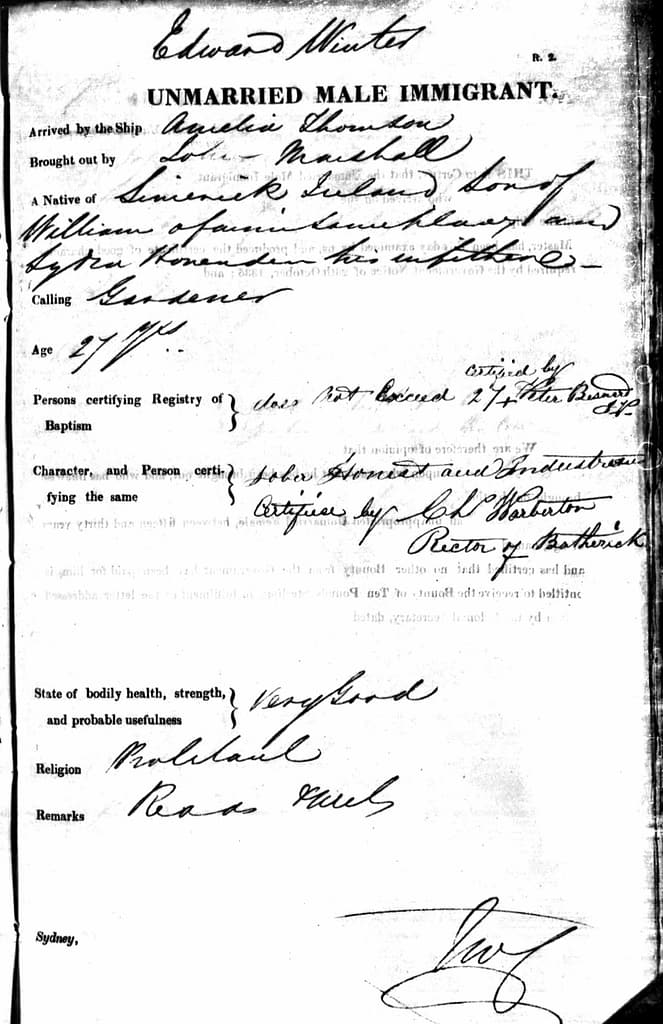 Edward Winter
R. 2.
UNMARRIED MALE IMMIGRANT.
Arrived by the Ship Amelia Thomson
Brought out by John Marshall
A Native of Limerick Ireland Son of
William of same place and
Lydia his wife there
Calling Gardener
Age 27 Yrs
certified by
Persons certifying Registry of Baptism } does not Exceed 27 Peter Besnard
Character, and Person certifying the same } Sober Honest and Industrious
Certified by Chs Warberton
Rector of
State of bodily health, strength, and probable usefulness } Very Good
Religion Protestant
Remarks Reads
Sydney,